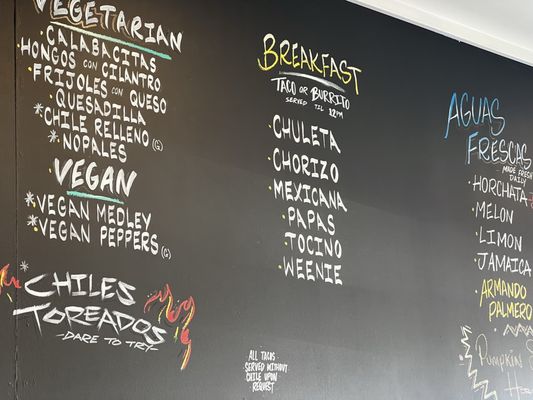 VEGETARIAN
· CALABACITAS
· HONGOS CON CILANTRO
· FRIJOLES CON QUESO
· QUESADILLA
* · CHILE RELLENO (G)
* · NOPALES
VEGAN
* · VEGAN MEDLEY
* · VEGAN PEPPERS (G)
* CHILES
TOREADOS
- DARE TO TRY -
BREAKFAST
TACO OR BURRITO
SERVED TIL 12PM
· CHULETA
· CHORIZO
· MEXICANA
· PAPAS
· TOCINO
· WEENIE
ALL TACOS
SERVED WITHOUT
CHILE UPON
REQUEST
AGUAS
FRESCAS
MADE FRESH
DAILY
· HORCHATA
· MELON
· LIMON
· JAMAICA
· ARMANDO
PALMERO
PUMPKIN